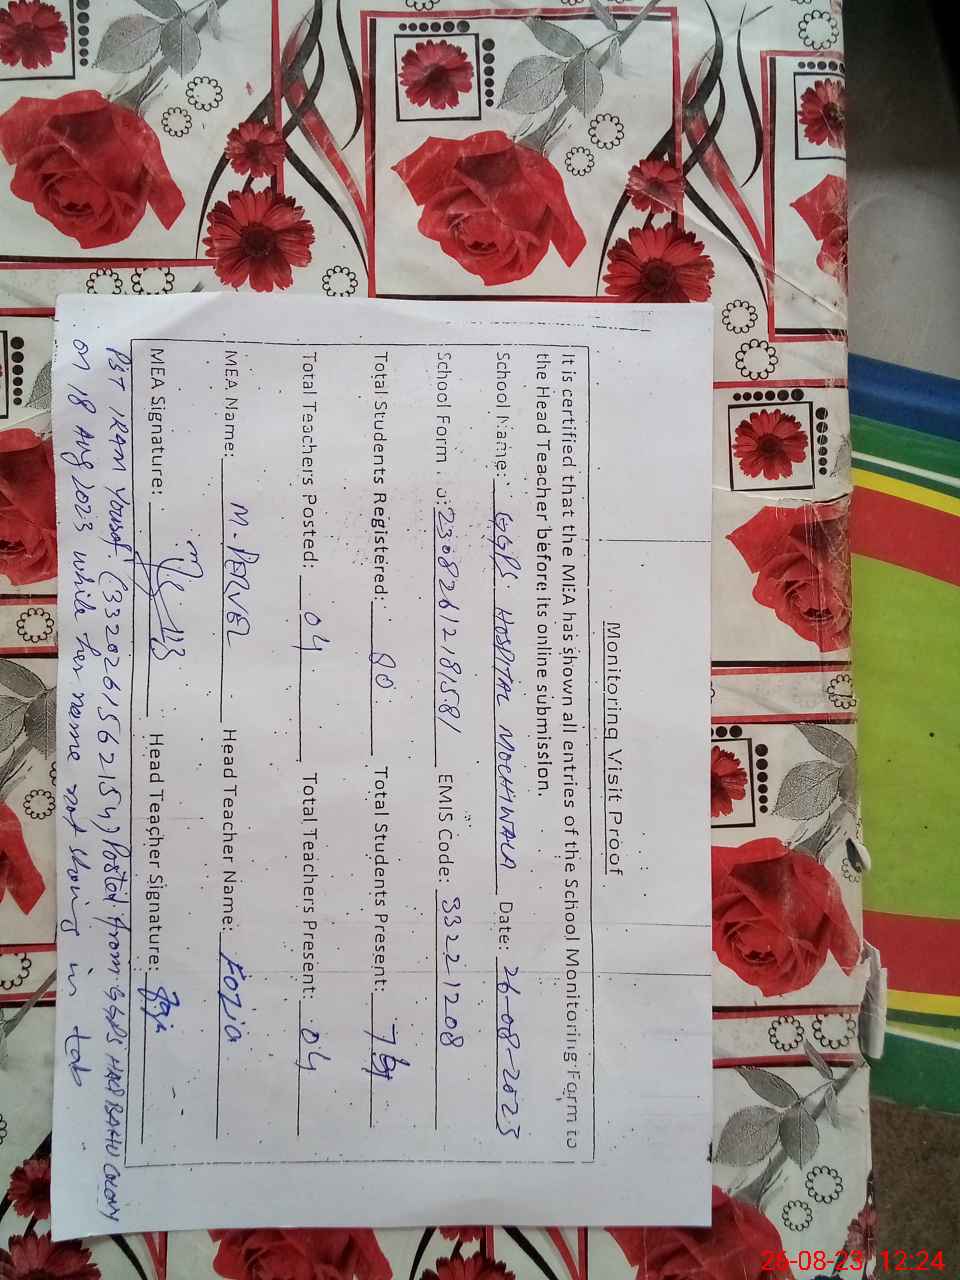 Monitoring Visit Proof
It is certified that the MEA has shown all entries of the School Monitoring Form to
the Head Teacher before its online submission.
School Name: GGPS HOSPITAL MOCHIWALA Date: 26-08-2023
School Form o: 2308261218158/ EMIS Code: 33221208
Total Students Registered: 80 Total Students Present: 74
Total Teachers Posted: 04 Total Teachers Present: 04
MEA Name: M-PERVEZ Head Teacher Name: FOZIA
MEA Signature: Head Teacher Signature:
PST IRAM Yousaf (3320261562154) Posted from GGPS HAQ BAHU COLONY
on 18 Aug 2023 while her name not shoing in tab.
26-08-23 12:24